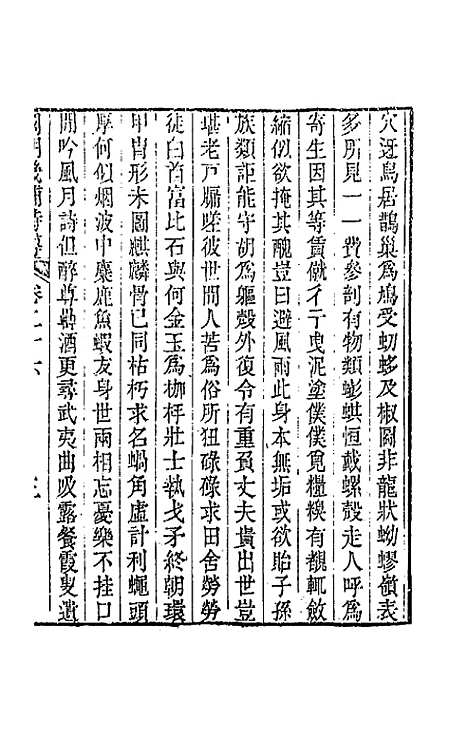 穴逐鳥居鵲巢為鳩受蚴蛥及椒圖非龍狀蚴蟉嶺表
多所見一一費參剖有物類蟛蜞恒戴螺殼走人呼為
寄生因其等賃僦彳亍曳泥塗僕僕覓糧糗有覩輒斂
縮似欲掩其醜豈曰避風雨此身本無垢或欲貽子孫
族類詎能守胡為軀殼外復令有重負丈夫貴出世豈
堪老戶牖嗟彼世間人苦為俗所狃碌碌求田舍勞勞
徒白首富比石與何金玉為枷杻壯士執戈矛終朝環
甲冑形未圖麒麟骨已同枯朽求名蝸角虛計利蠅頭
厚何似烟波中麋鹿魚蝦友身世兩相忘憂樂不挂口
閒吟風月詩但醉尊罍酒更尋武夷曲吸露餐霞叟遺
國朝畿輔詩傳 卷二十六